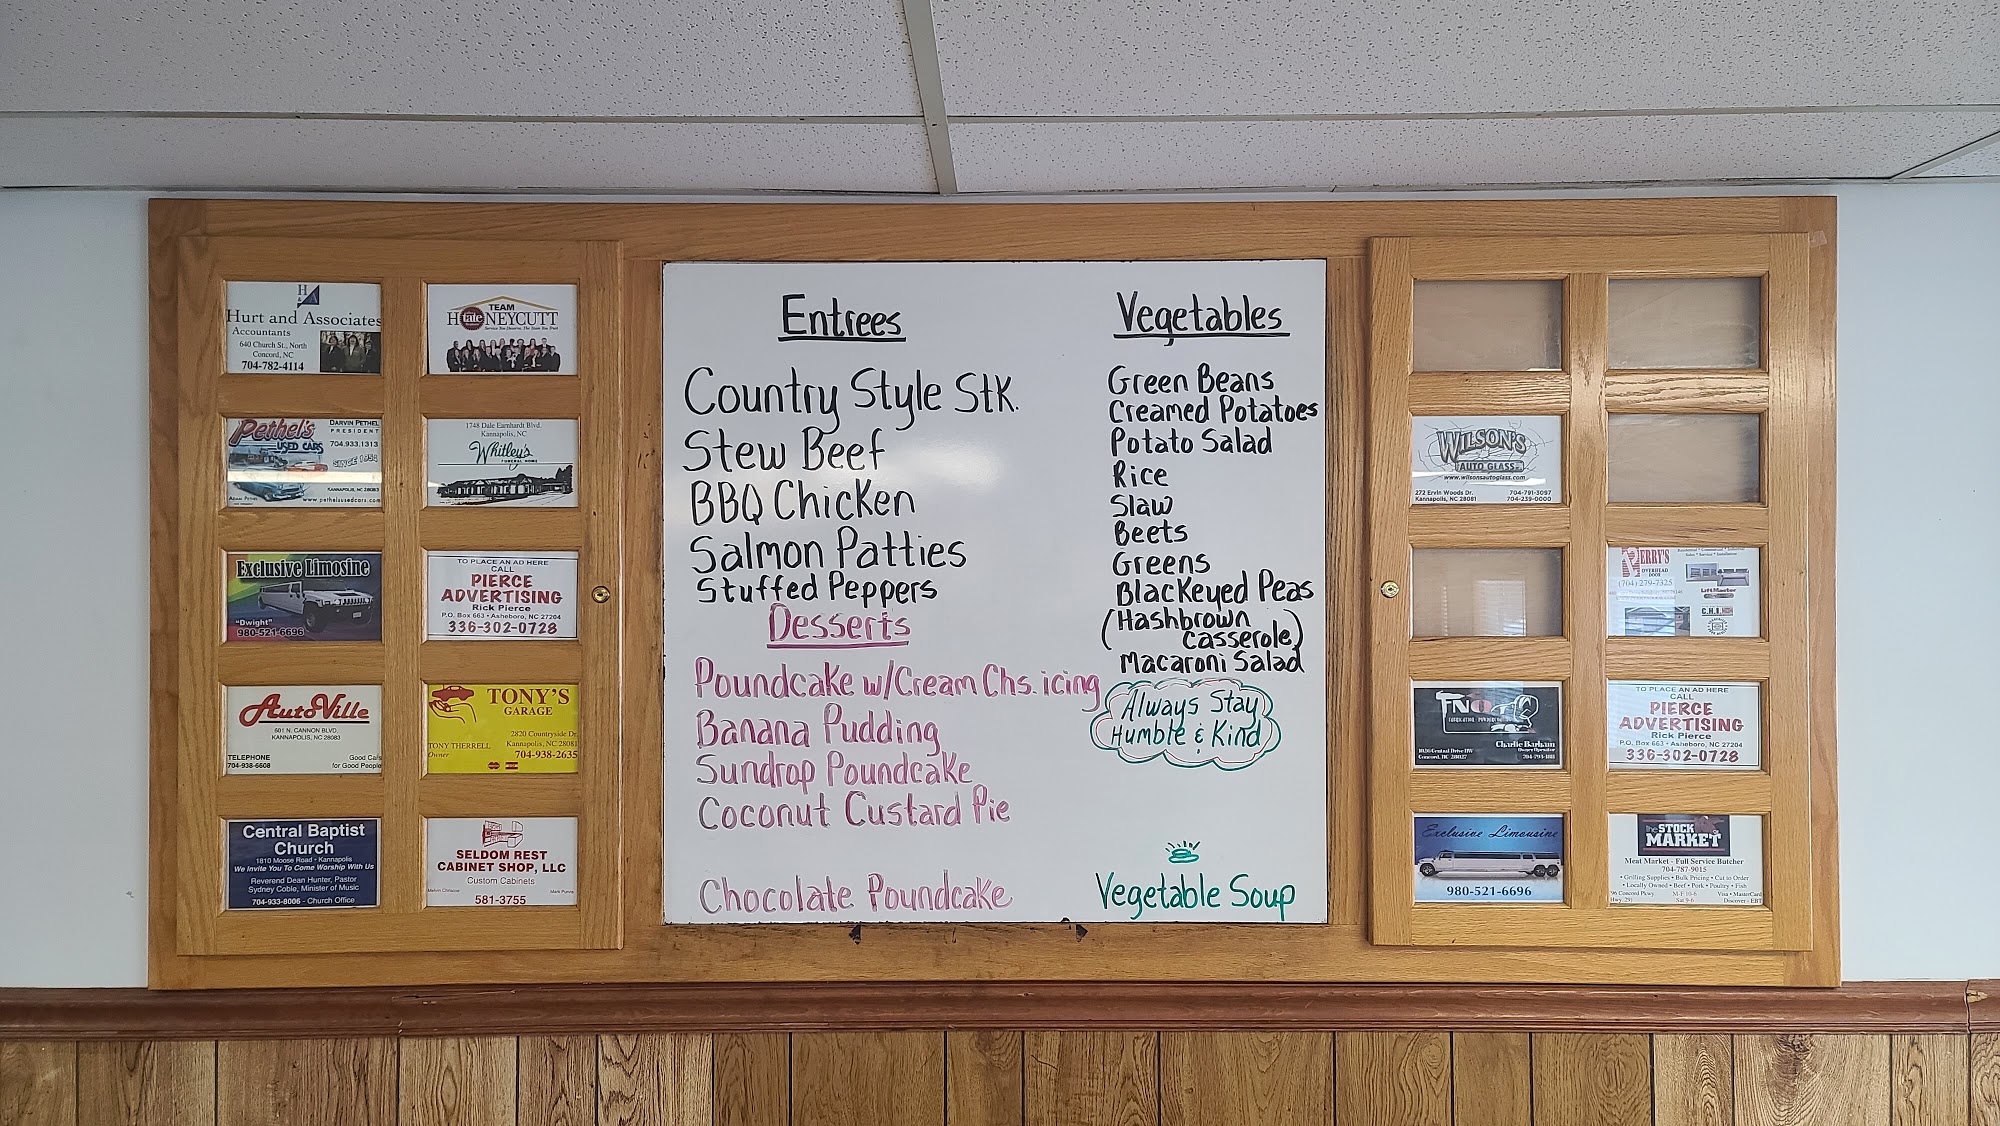 H
& A
Hurt and Associates
Accountants
640 Church St., North
Concord, NC
704-782-4114
TEAM
HONEYCUTT
tate
Service You Deserve, The Team You Trust
Pethel's
USED CARS
DARVIN PETHEL
PRESIDENT
704.933.1313
SINCE 1954
KANNAPOLIS, NC 28083
www.pethelsusedcars.com
1748 Dale Earnhardt Blvd.
Kannapolis, NC
Whitley's
FUNERAL HOME
Exclusive Limosine
"Dwight"
980-521-6696
TO PLACE AN AD HERE
CALL
PIERCE
ADVERTISING
Rick Pierce
P.O. Box 663 • Asheboro, NC 27204
336-302-0728
AutoVille
501 N. CANNON BLVD.
KANNAPOLIS, NC 28083
TELEPHONE
704-938-6608
Good Cars
for Good People
TONY'S
GARAGE
2820 Countryside Dr.
Kannapolis, NC 28081
TONY THERRELL
Owner
704-938-2635
Central Baptist
Church
1810 Moose Road • Kannapolis
We Invite You To Come Worship With Us
Reverend Dean Hunter, Pastor
Sydney Coble, Minister of Music
704-933-8006 - Church Office
SELDOM REST
CABINET SHOP, LLC
Custom Cabinets
581-3755
Entrees
Country Style Stk.
Stew Beef
BBQ Chicken
Salmon Patties
Stuffed Peppers
Desserts
Poundcake w/Cream Chs. icing
Banana Pudding
Sundrop Poundcake
Coconut Custard Pie
Chocolate Poundcake
Vegetables
Green Beans
Creamed Potatoes
Potato Salad
Rice
Slaw
Beets
Greens
Blackeyed Peas
(Hashbrown
Casserole)
Macaroni Salad
Always Stay
Humble & Kind
Vegetable Soup
WILSON'S
AUTO GLASS
www.wilsonsautoglass.com
272 Ervin Woods Dr.
Kannapolis, NC 28081
704-791-3097
704-239-0000
OVERHEAD
DOOR
(704) 279-7325
LiftMaster
C.H.I.
Charlie Barham
Owner Operator
Concord, NC 28027
TO PLACE AN AD HERE
CALL
PIERCE
ADVERTISING
Rick Pierce
P.O. Box 663 • Asheboro, NC 27204
336-302-0728
Exclusive Limousine
980-521-6696
the STOCK
MARKET
Meat Market - Full Service Butcher
704-787-9015
• Grilling Supplies • Bulk Pricing • Cut to Order
• Locally Owned • Beef • Pork • Poultry • Fish
96 Concord Pkwy.
Hwy. 29)
M-F 10-6
Sat 9-6
Visa • MasterCard
Discover - EBT